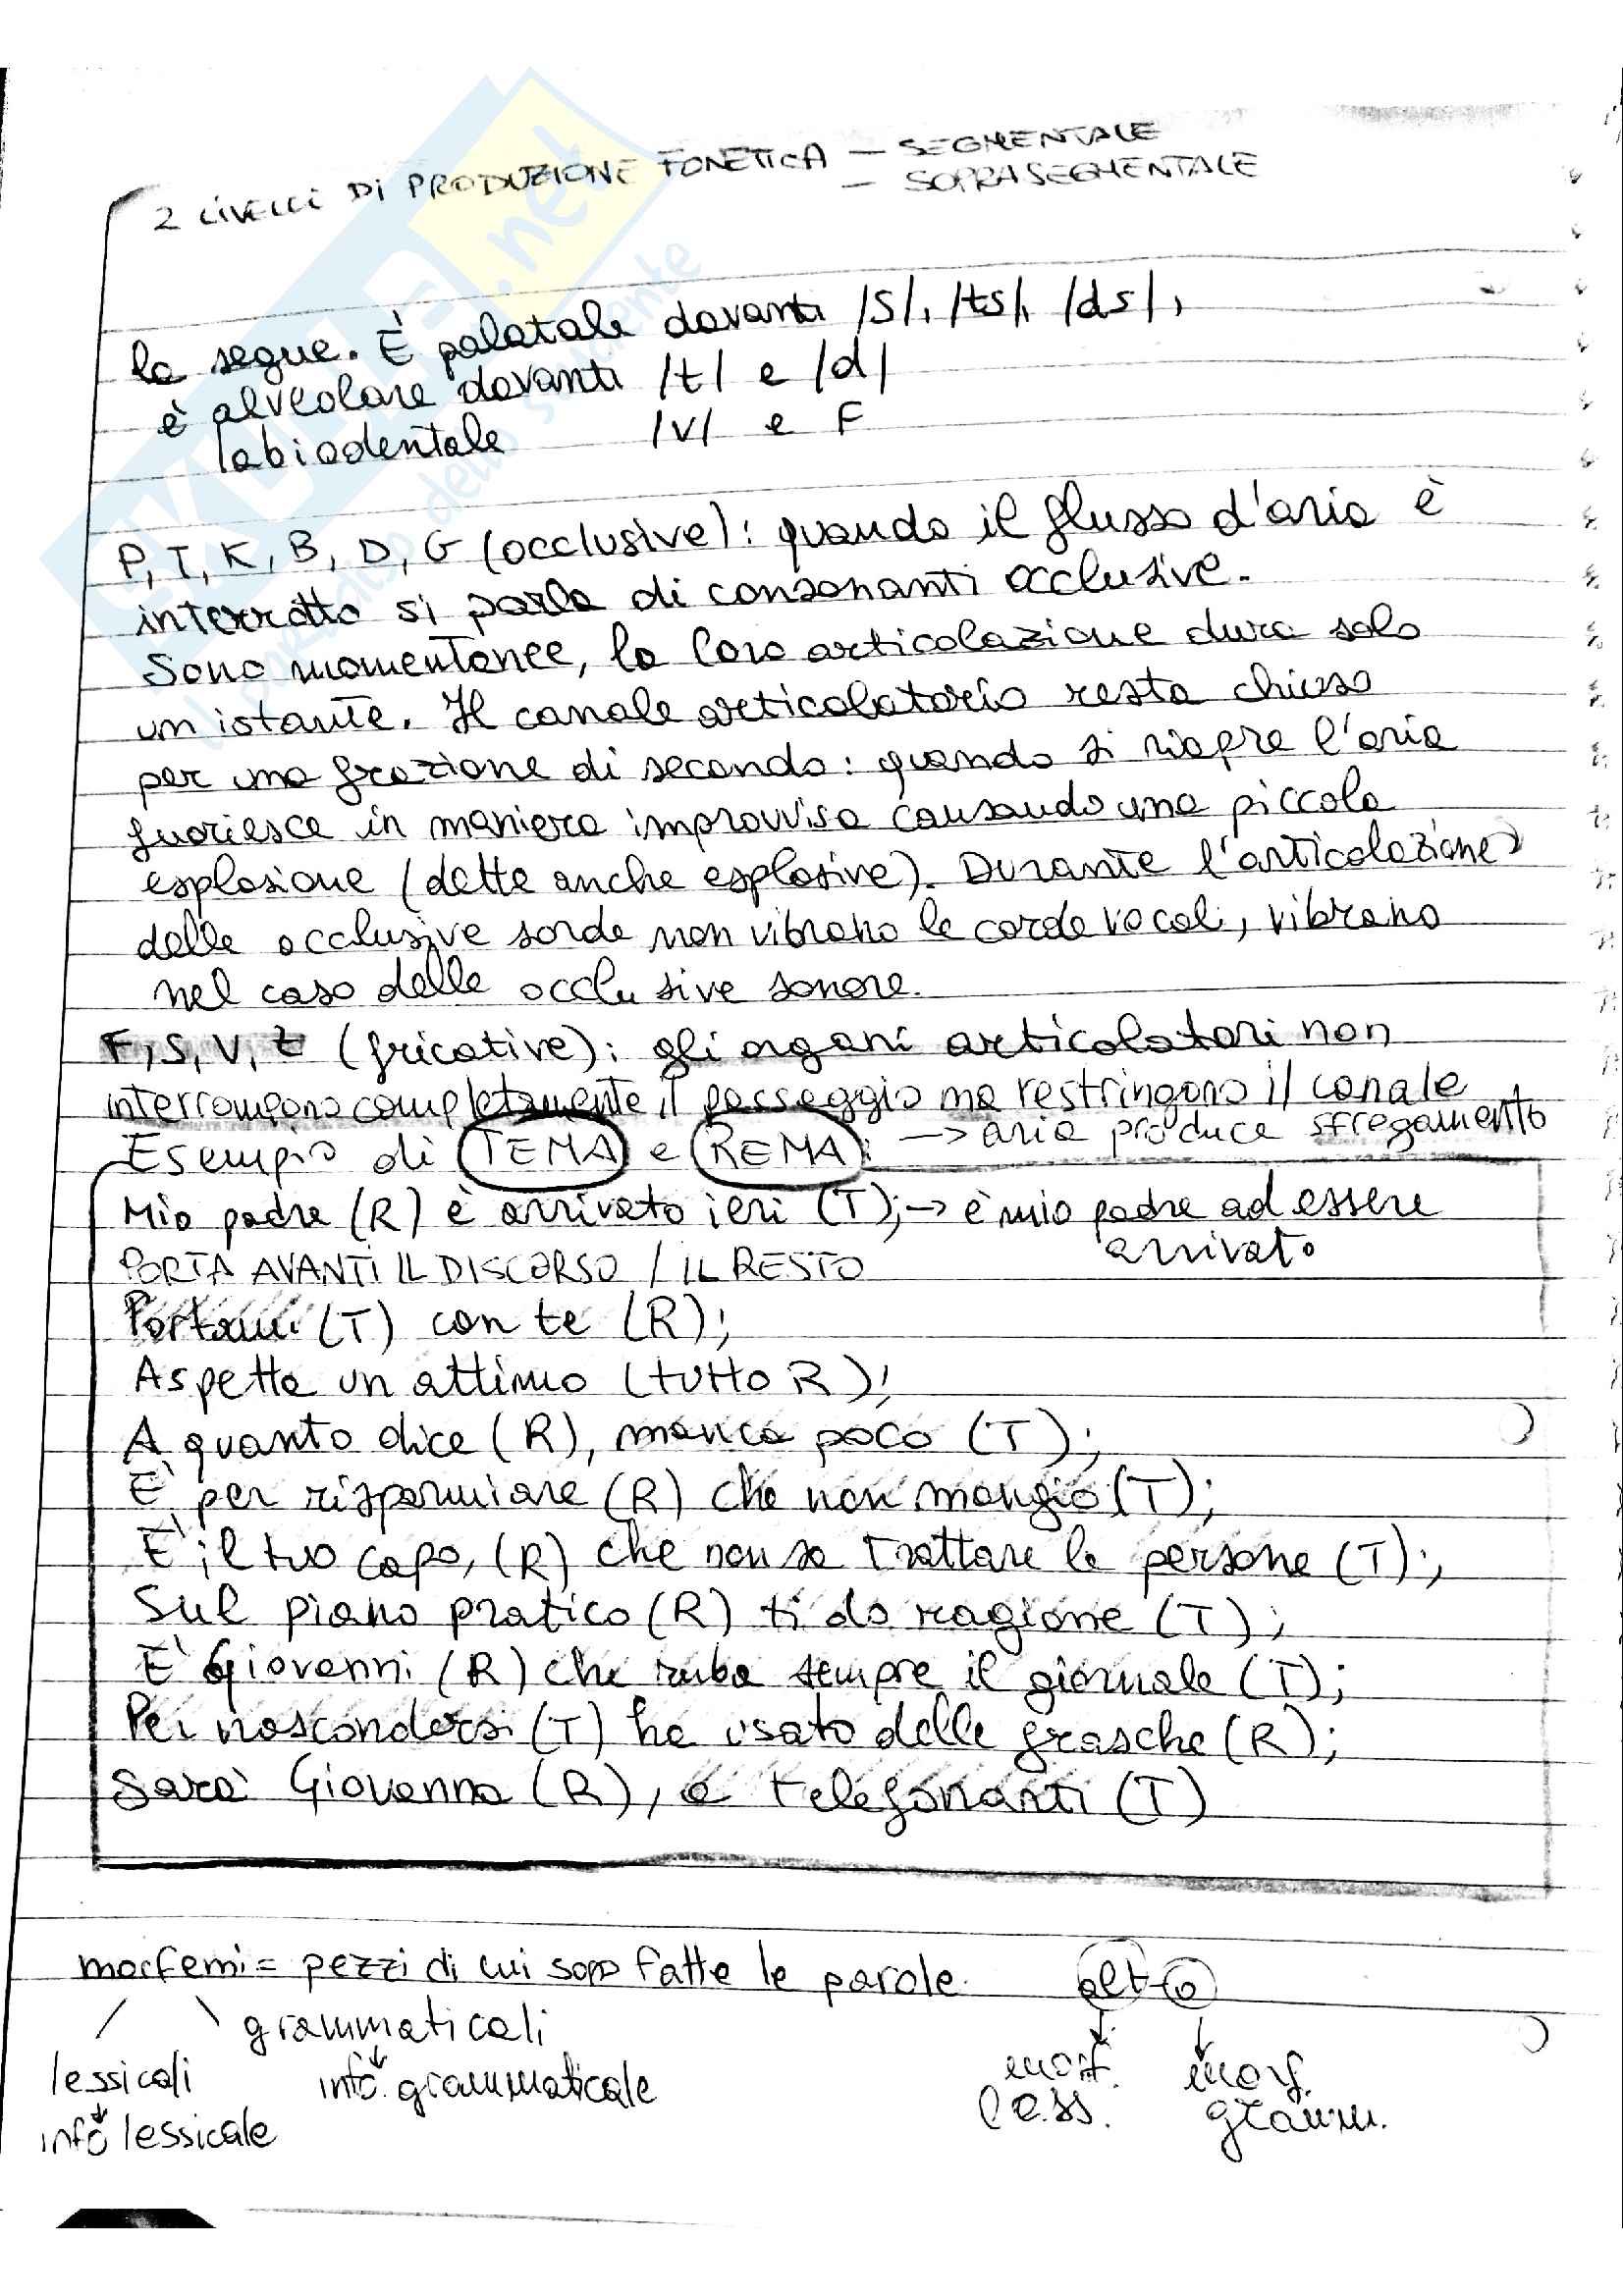 2 LIVELLI DI PRODUZIONE FONETICA – SEGMENTALE
– SOPRASEGMENTALE
la segue. È palatale davanti /S/, /ts/, /ds/,
è alveolare davanti /t/ e /d/
labiodentale /v/ e F
P, T, K, B, D, G (occlusive): quando il flusso d'aria è
interrotto si parla di consonanti occlusive.
Sono momentanee, la loro articolazione dura solo
un istante. Il canale articolatorio resta chiuso
per una frazione di secondo: quando si riapre l'aria
fuoriesce in maniera improvvisa causando una piccola
esplosione (dette anche esplosive). Durante l'articolazione
delle occlusive sorde non vibrano le corde vocali, vibrano
nel caso delle occlusive sonore.
F, S, V, Z (fricative): gli organi articolatori non
interrompono completamente il passaggio ma restringono il canale
Esempio di TEMA e REMA: –> aria produce sfregamento
Mio padre (R) è arrivato ieri (T); –> è mio padre ad essere
arrivato
PORTA AVANTI IL DISCORSO / IL RESTO
Portami (T) con te (R);
Aspetta un attimo (tutto R);
A quanto dice (R), manca poco (T);
E' per risparmiare (R) che non mangio (T);
E' il tuo capo, (R) che non sa trattare le persone (T);
Sul piano pratico (R) ti do ragione (T);
E' Giovanni (R) che ruba sempre il giornale (T);
Per nascondersi (T) ha usato delle frasche (R);
Sarà Giovanna (R), a telefonarti (T)
morfemi = pezzi di cui sono fatte le parole. alt-o
grammaticali
lessicali info grammaticale morf. morf.
info lessicale less. gramm.
SKUOLA.net
il paradiso dello studente